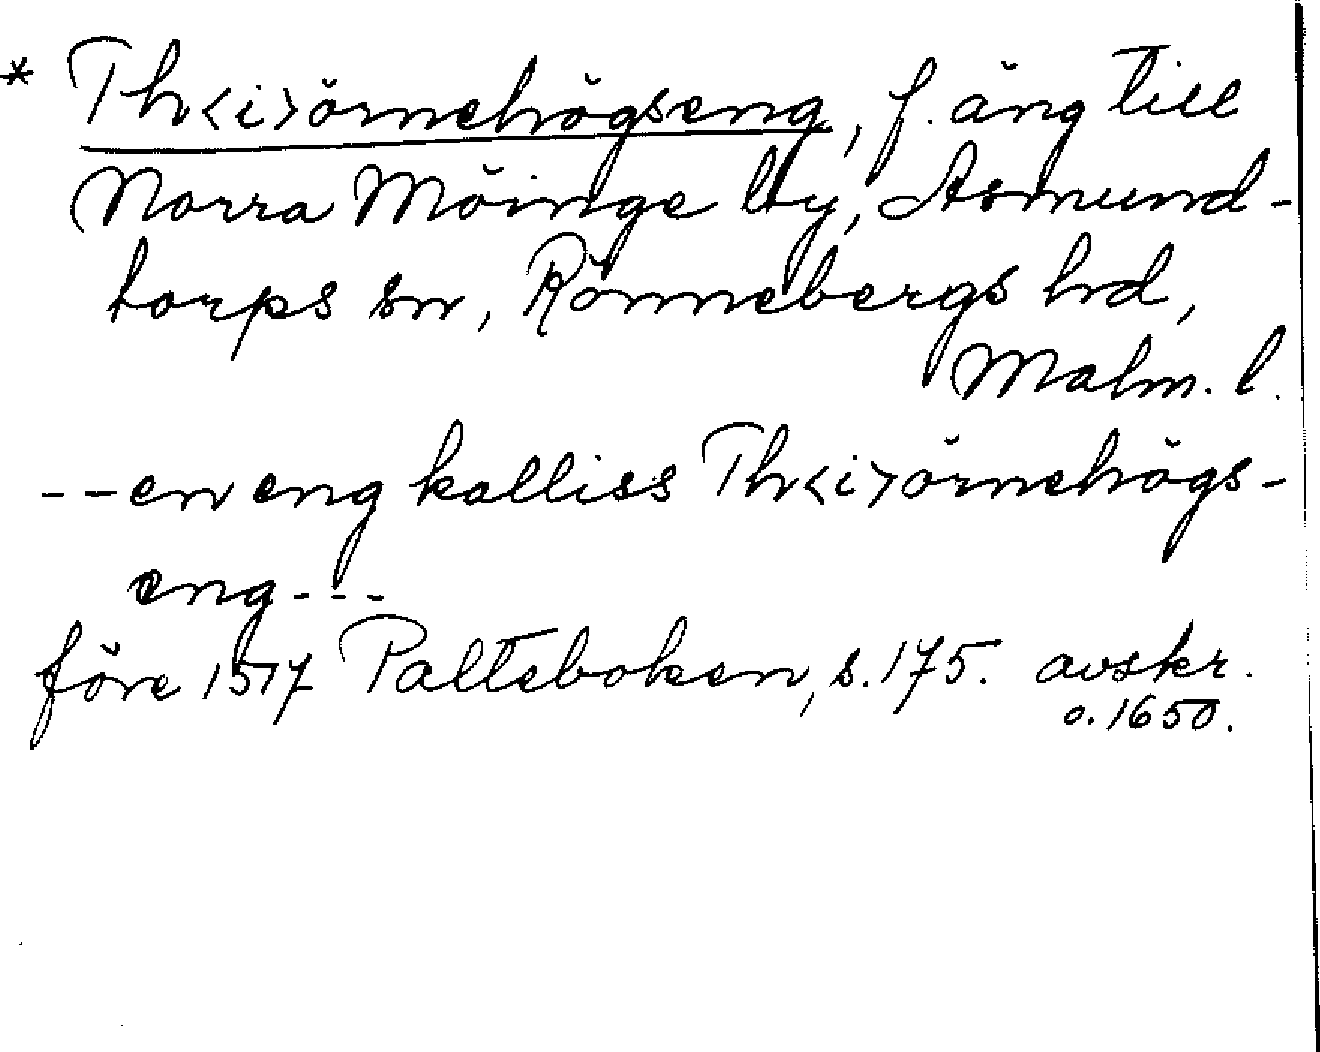 * Th<i>örnehögseng, f. äng till
Norra Möinge by, Asmund-
torps sn, Rönnebergs hd,
Malm. l.
-- en eng kalliss Th<i>örnehögs-
eng - - -
före 1517 Palteboken, s. 175. avskr.
o. 1650.